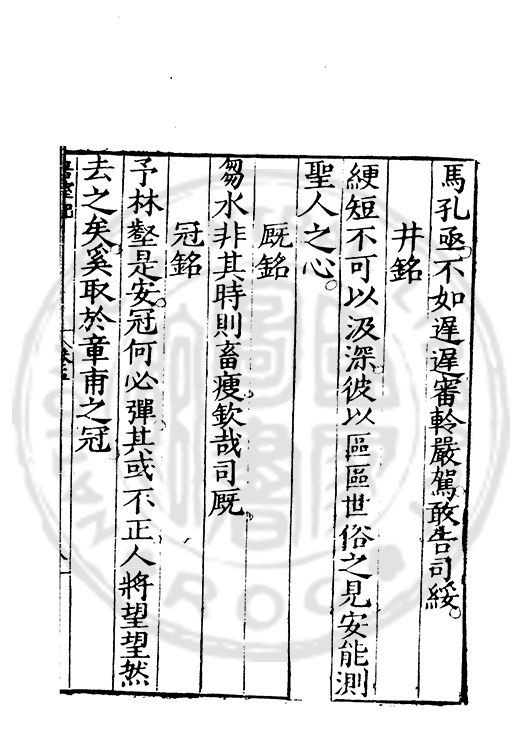 馬孔亟。不如遲遲審軨嚴駕敢告司綏。
井銘
綆短不可以汲深。彼以區區世俗之見安能測
聖人之心。
厩銘
芻水非其時則畜瘦。欽哉司厩。
冠銘
予林壑是安。冠何必彈。其或不正人將望望然
去之矣。奚取於章甫之冠